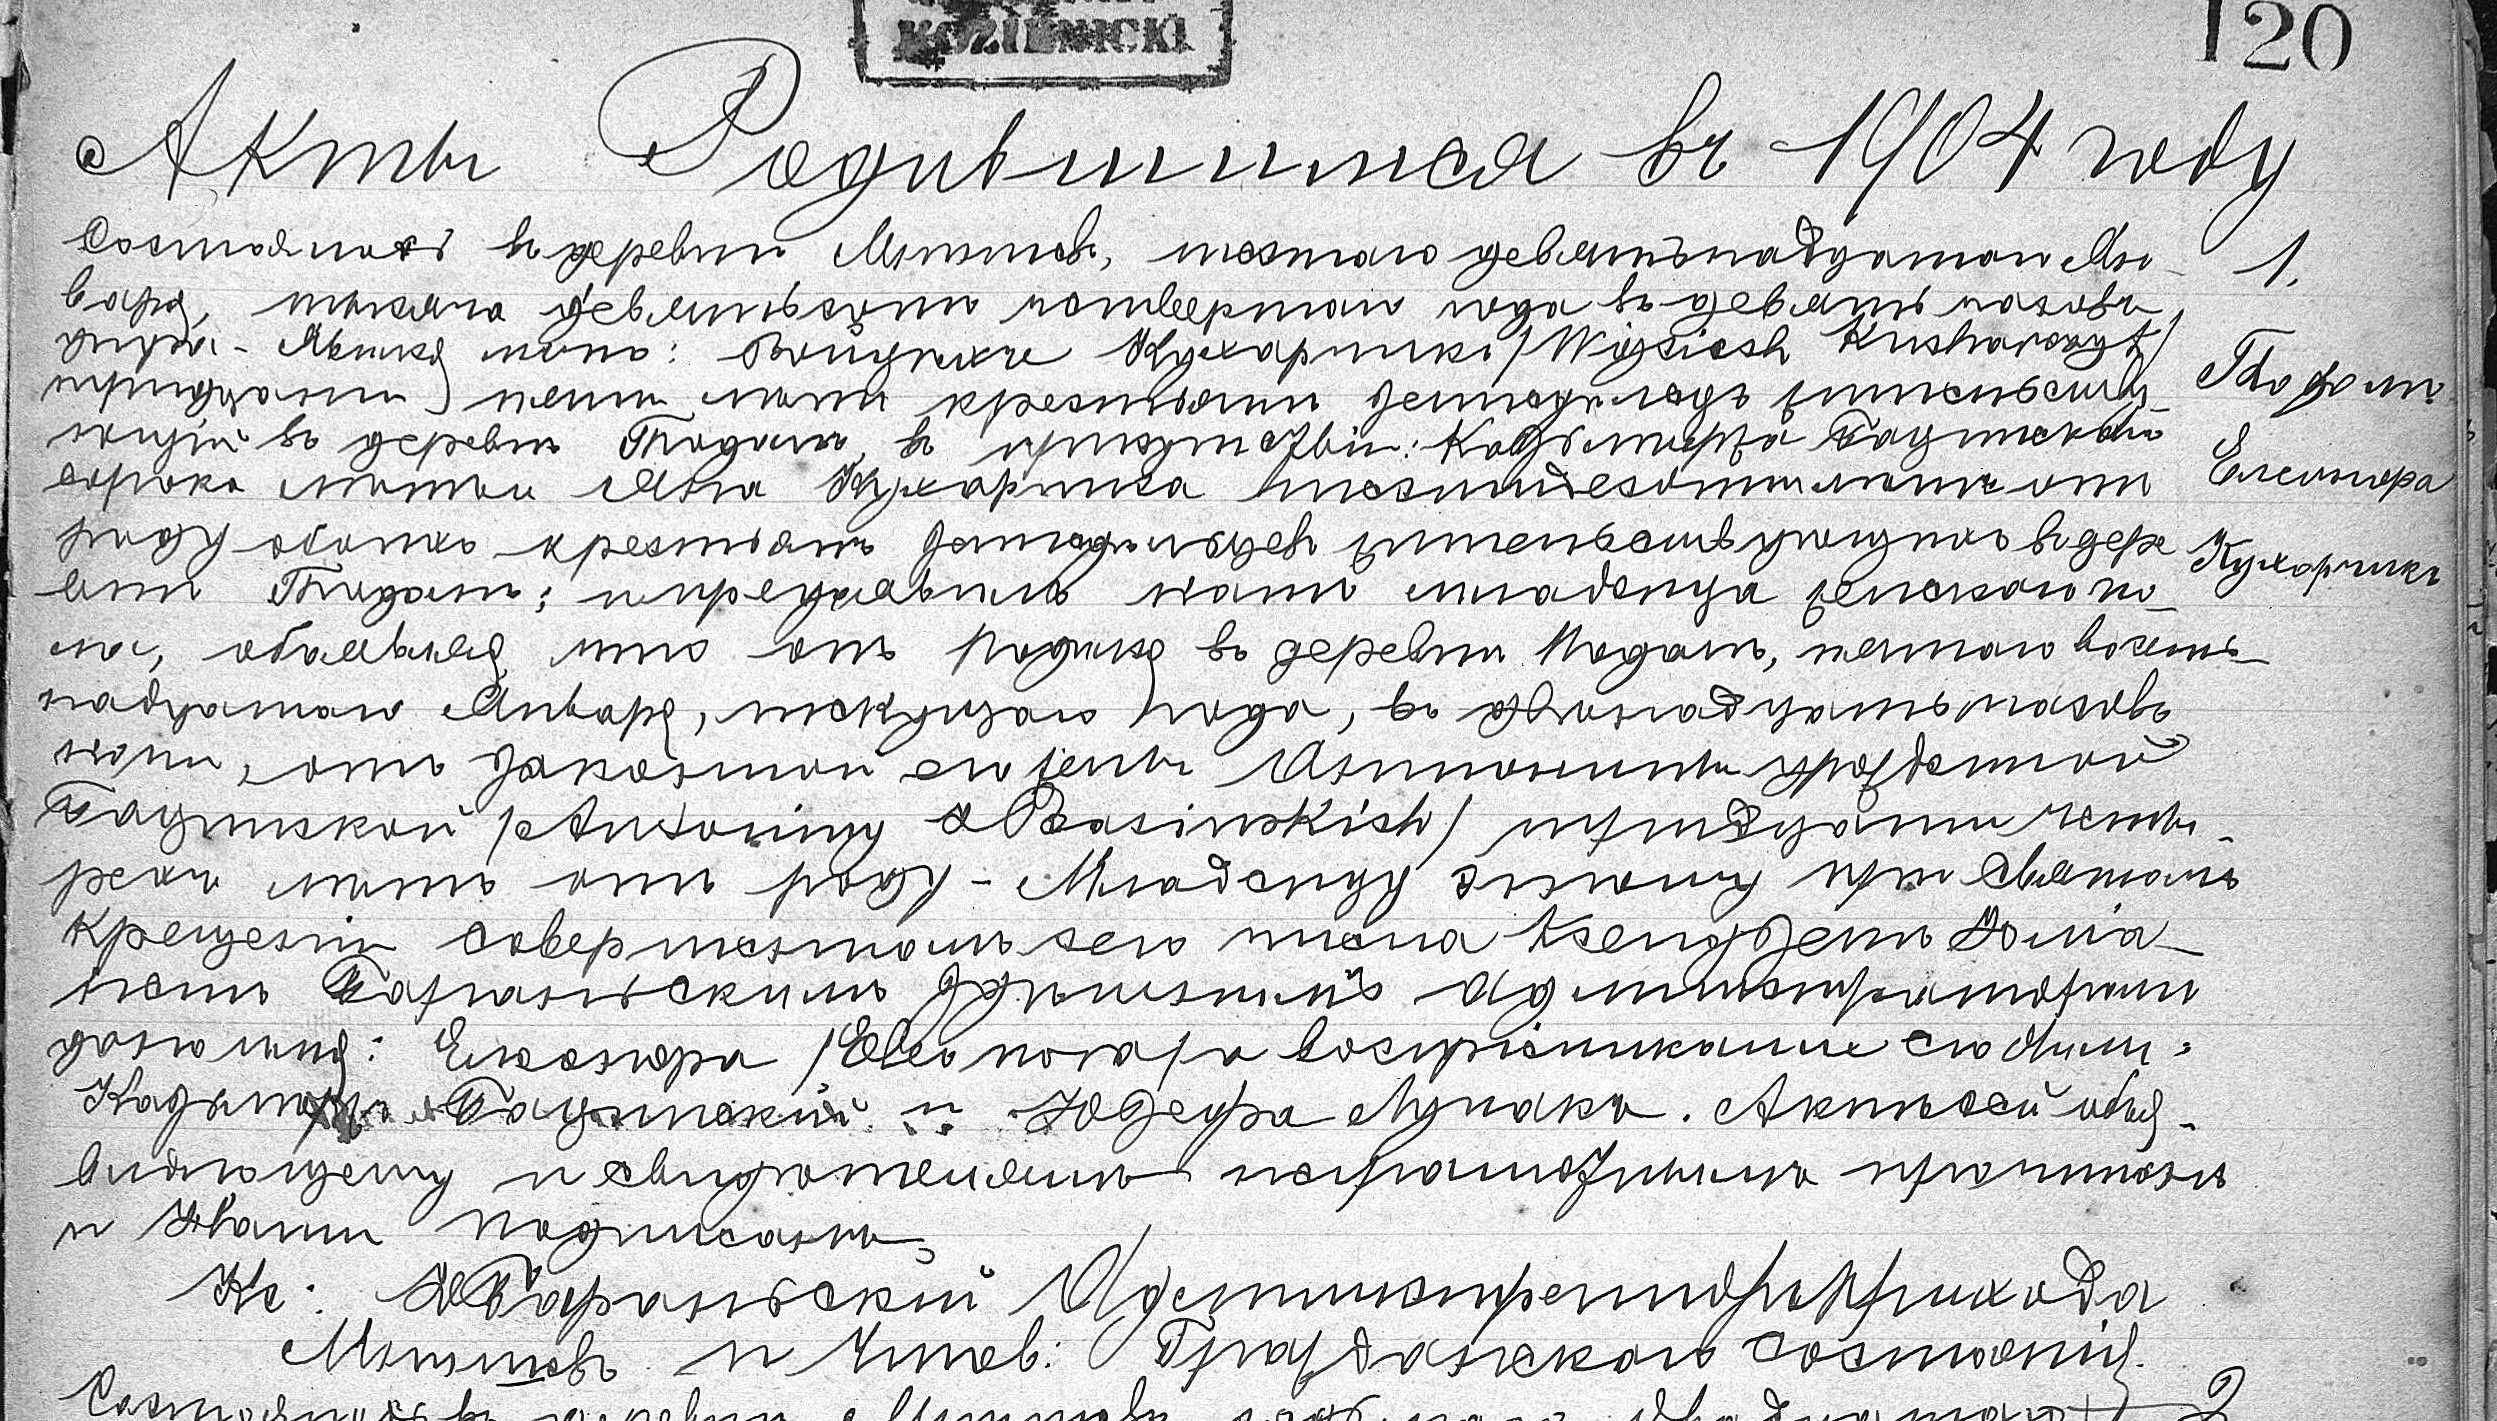 KOZIENICKI
120
Акты Родившихся въ 1904 году
Состоялось въ деревни Мнишевъ, шестаго девятьнадцатаго Ян-
1.
варя, тысяча девятьсотъ четвертаго года въ девять часовъ
дня. Явился лично: Войцехъ Кухарчикъ /Wojciech Kucharczyk/
тридцати пяти летъ крестьянинъ земледелецъ жительству-
ющій въ деревни въ присутствіи: Казимира Базинскаго
Елеонора
сорока летъ и Яна Кухарчика шестидесяти летъ отъ
роду обоихъ крестьянъ земледельцевъ жительствующихъ въ дере
Кухарчикъ
вни и предъявилъ намъ младенца женскаго по-
ла, объявляя что онъ родился въ деревни пятаго восемь-
надцатаго Января, текущаго года, въ двенадцать часовъ
ночи, отъ законной его жены Антонины урожденной
Базинской /Antoniny z Bazińskich/ тридцати четы-
рехъ летъ отъ роду. - Младенцу этому при Святомъ
Крещеніи совершенномъ сего числа Ксендзомъ
Баранскимъ здешнимъ Администраторомъ
дано имя: Елеонора /Eleonora/ а воспріемниками его были:
Казимиръ Базинскій и Юзефа Актъ сей объя-
вляющему и свидетелямъ неграмотнымъ прочитанъ
и Нами подписанъ.
Кс: Баранскій Администраторъ Прихода
Мнишевъ и Чинов: Гражданскаго состоянія.
Состоялось въ деревни Мнишевъ
2